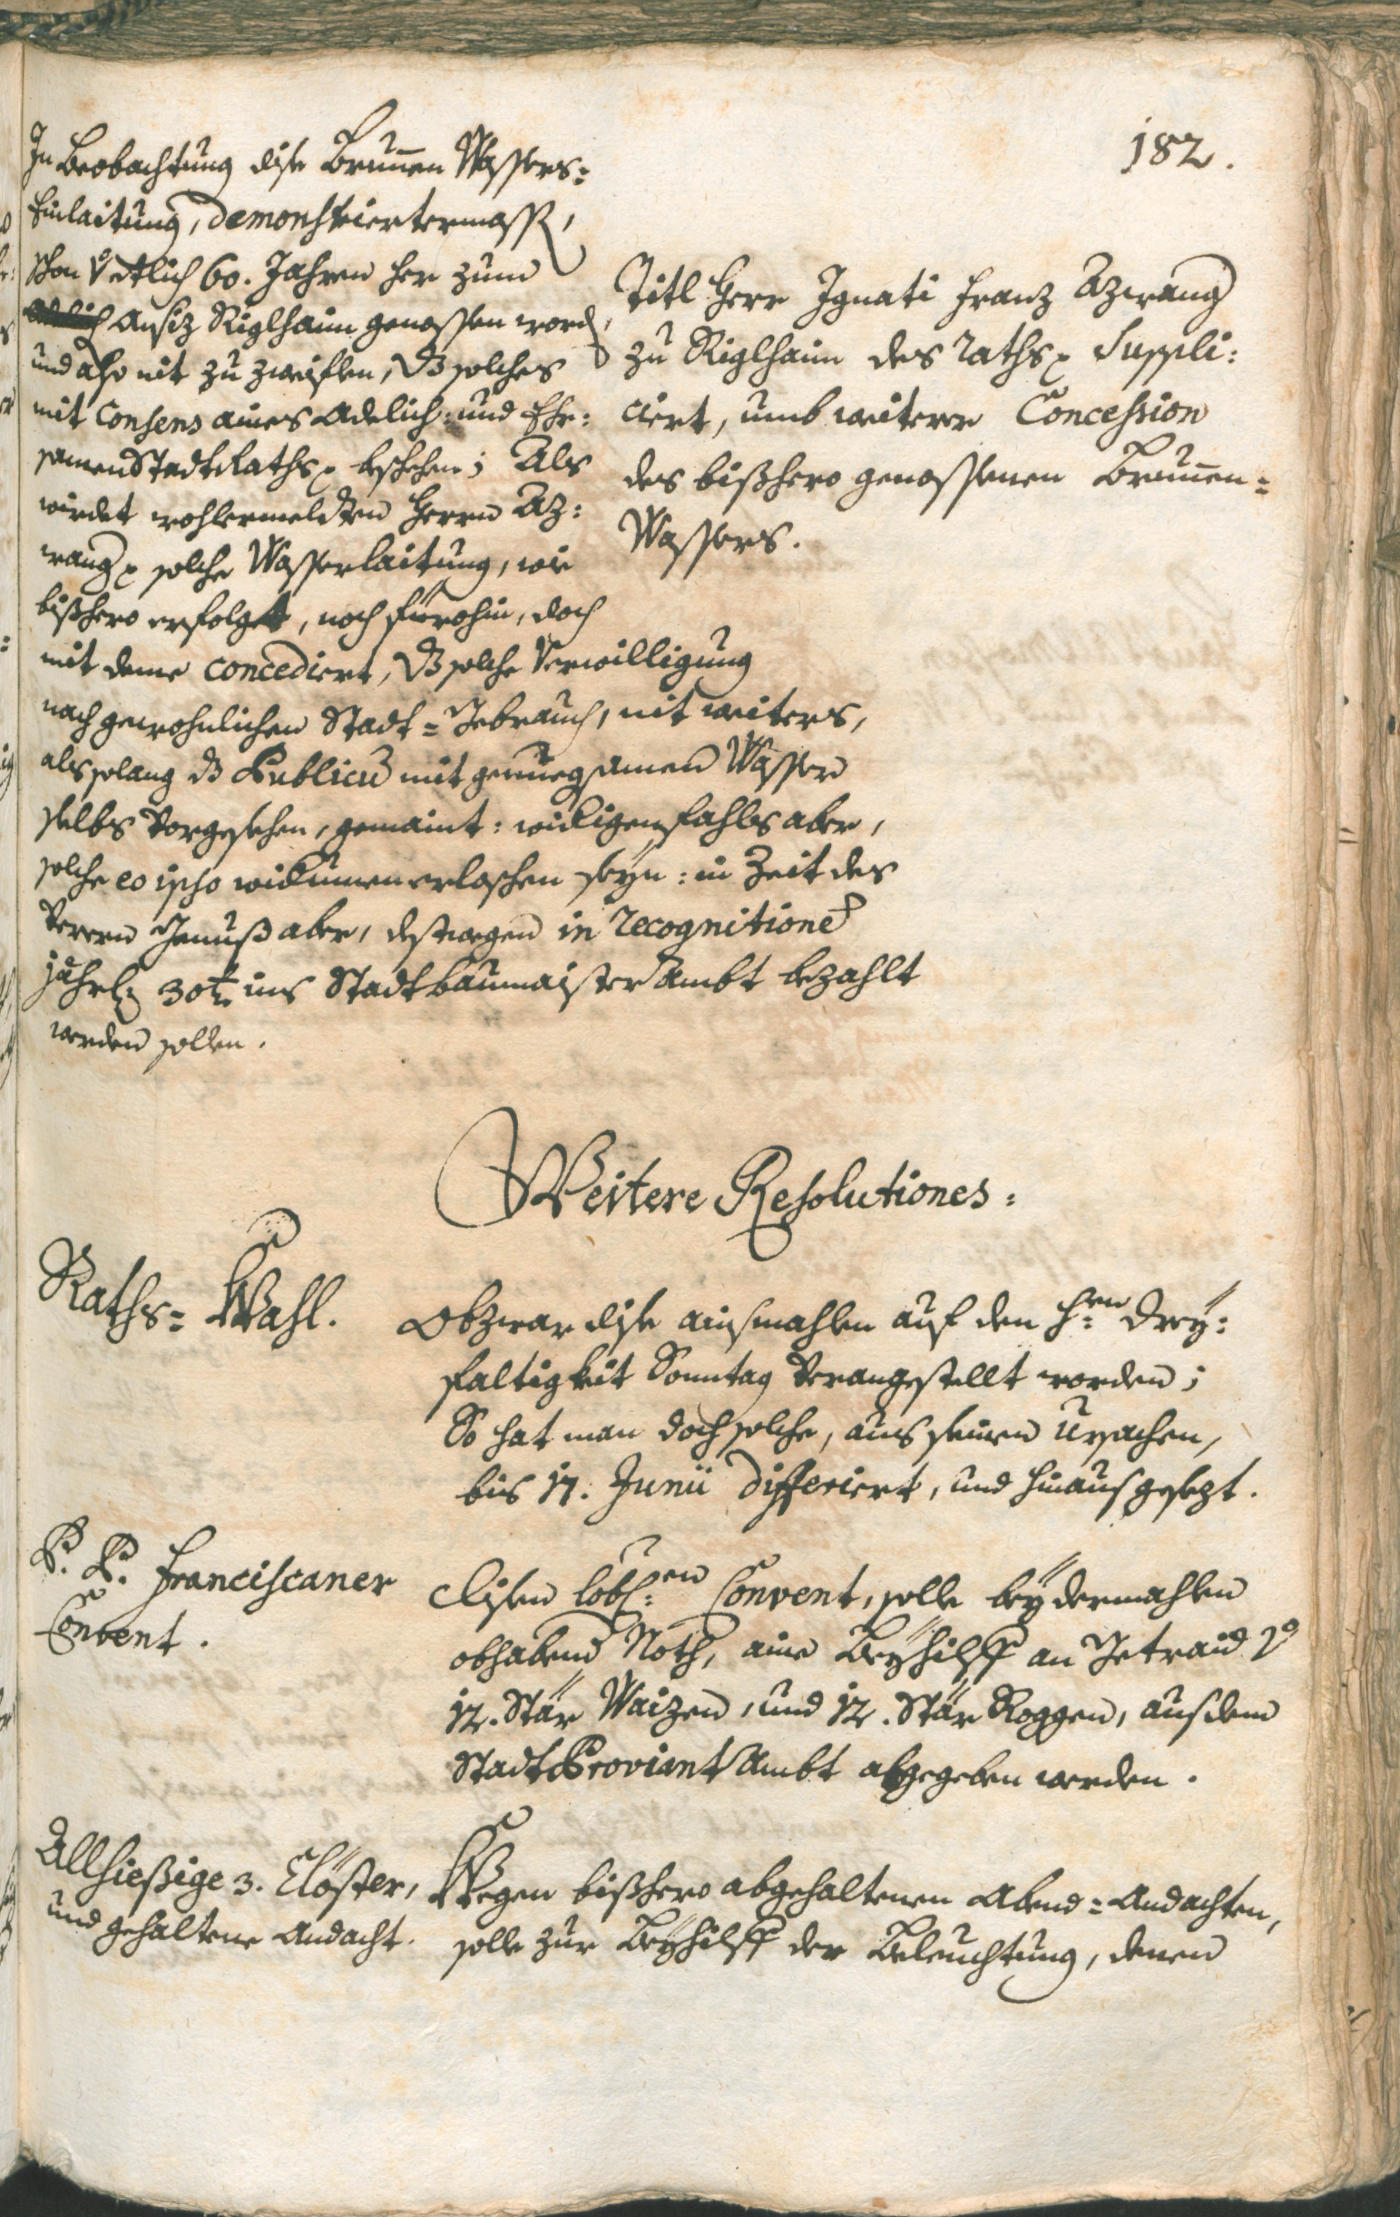 182.
In Beobachtung dise Brun̄en Wassers=
Einlaitung, demonstriertermass,
schon etlich 60. Jahren her zum
Ansiz Riglhaim genossen word,
und also nit zu zweiflen, dz solches
mit Consens aines Adelich= und Ehr=
samen Stadt Raths beschehen; Als
wirdet wohlermeldten Herrn Az=
wang solche Wasserlaitung, wie
bißhero erfolget, noch fürohin, doch
mit deme concediert, dz solche Verwilligung
nach gewohnlichen Stadt=Gebrauch, nit weiters,
als solang dz Publicū mit genuegsamen Wasser
selbs vorgesehen, gemaint: widrigen fahls aber,
solche eo ipso widerumen erloschen seÿn: in Zeit des
verern Genuß aber, destwegen in recognitione
jährl: 30 x ins Stadtbaumaister Ambt bezahlt
werden sollen.
Titl Herr Ignati Franz Azwang
zu Riglhaim des Raths Suppli:
ciert, umb weitere Concession
des bißhero genossenen Brun̄en=
Wassers.
Weitere Resolutiones:
Raths=Wahl.
Obzwar dise ainsmahlen auf den h:en Dreÿ:
faltigkeit Sonntag verangestellt worden;
So hat man doch solche, aus seinen Ursachen,
bis 17. Junii differiert, und hinausgesezt.
P. P. Franciscaner
Convent.
Disen löbl:en Convent, solle beÿ dermahlen
obhabend Noth, eine Beÿhilff an Getraid
12. Stär Waizen, und 12. Stär Roggen, aus dem
Stadt Proviant Ambt abgegeben werden.
Allhießige 3. Clöster,
und gehaltene Andacht.
Wegen bißhero abgehaltenen Abend=Andachten,
solle zur Beÿhilff der Beleuchtung, denen